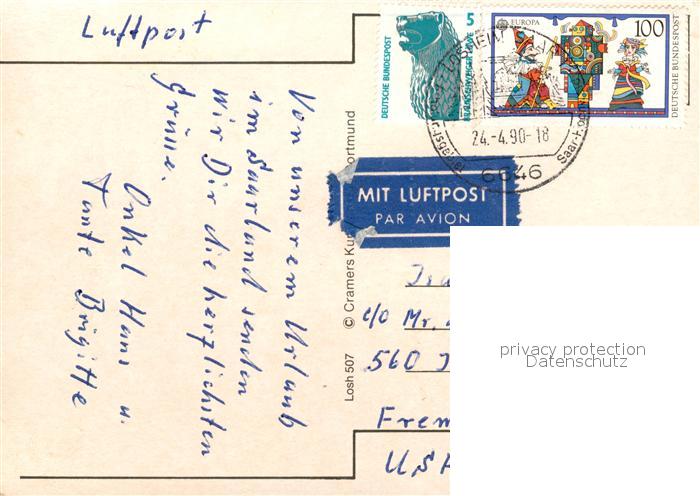 Luftpost
Von unserem Urlaub
im Saarland senden
wir Dir die herzlichsten
Grüsse.
Onkel Hans u.
Tante Brigitte
Losh 507 © Cramers Ku ortmund
DEUTSCHE BUNDESPOST
5
BRAUNSCHWEIGER LÖWE
EUROPA
100
DEUTSCHE BUNDESPOST
LOSHEIM
24.-4.90-18
6646
MIT LUFTPOST
PAR AVION
c/o Mr.
560
Frem
USA
privacy protection
Datenschutz